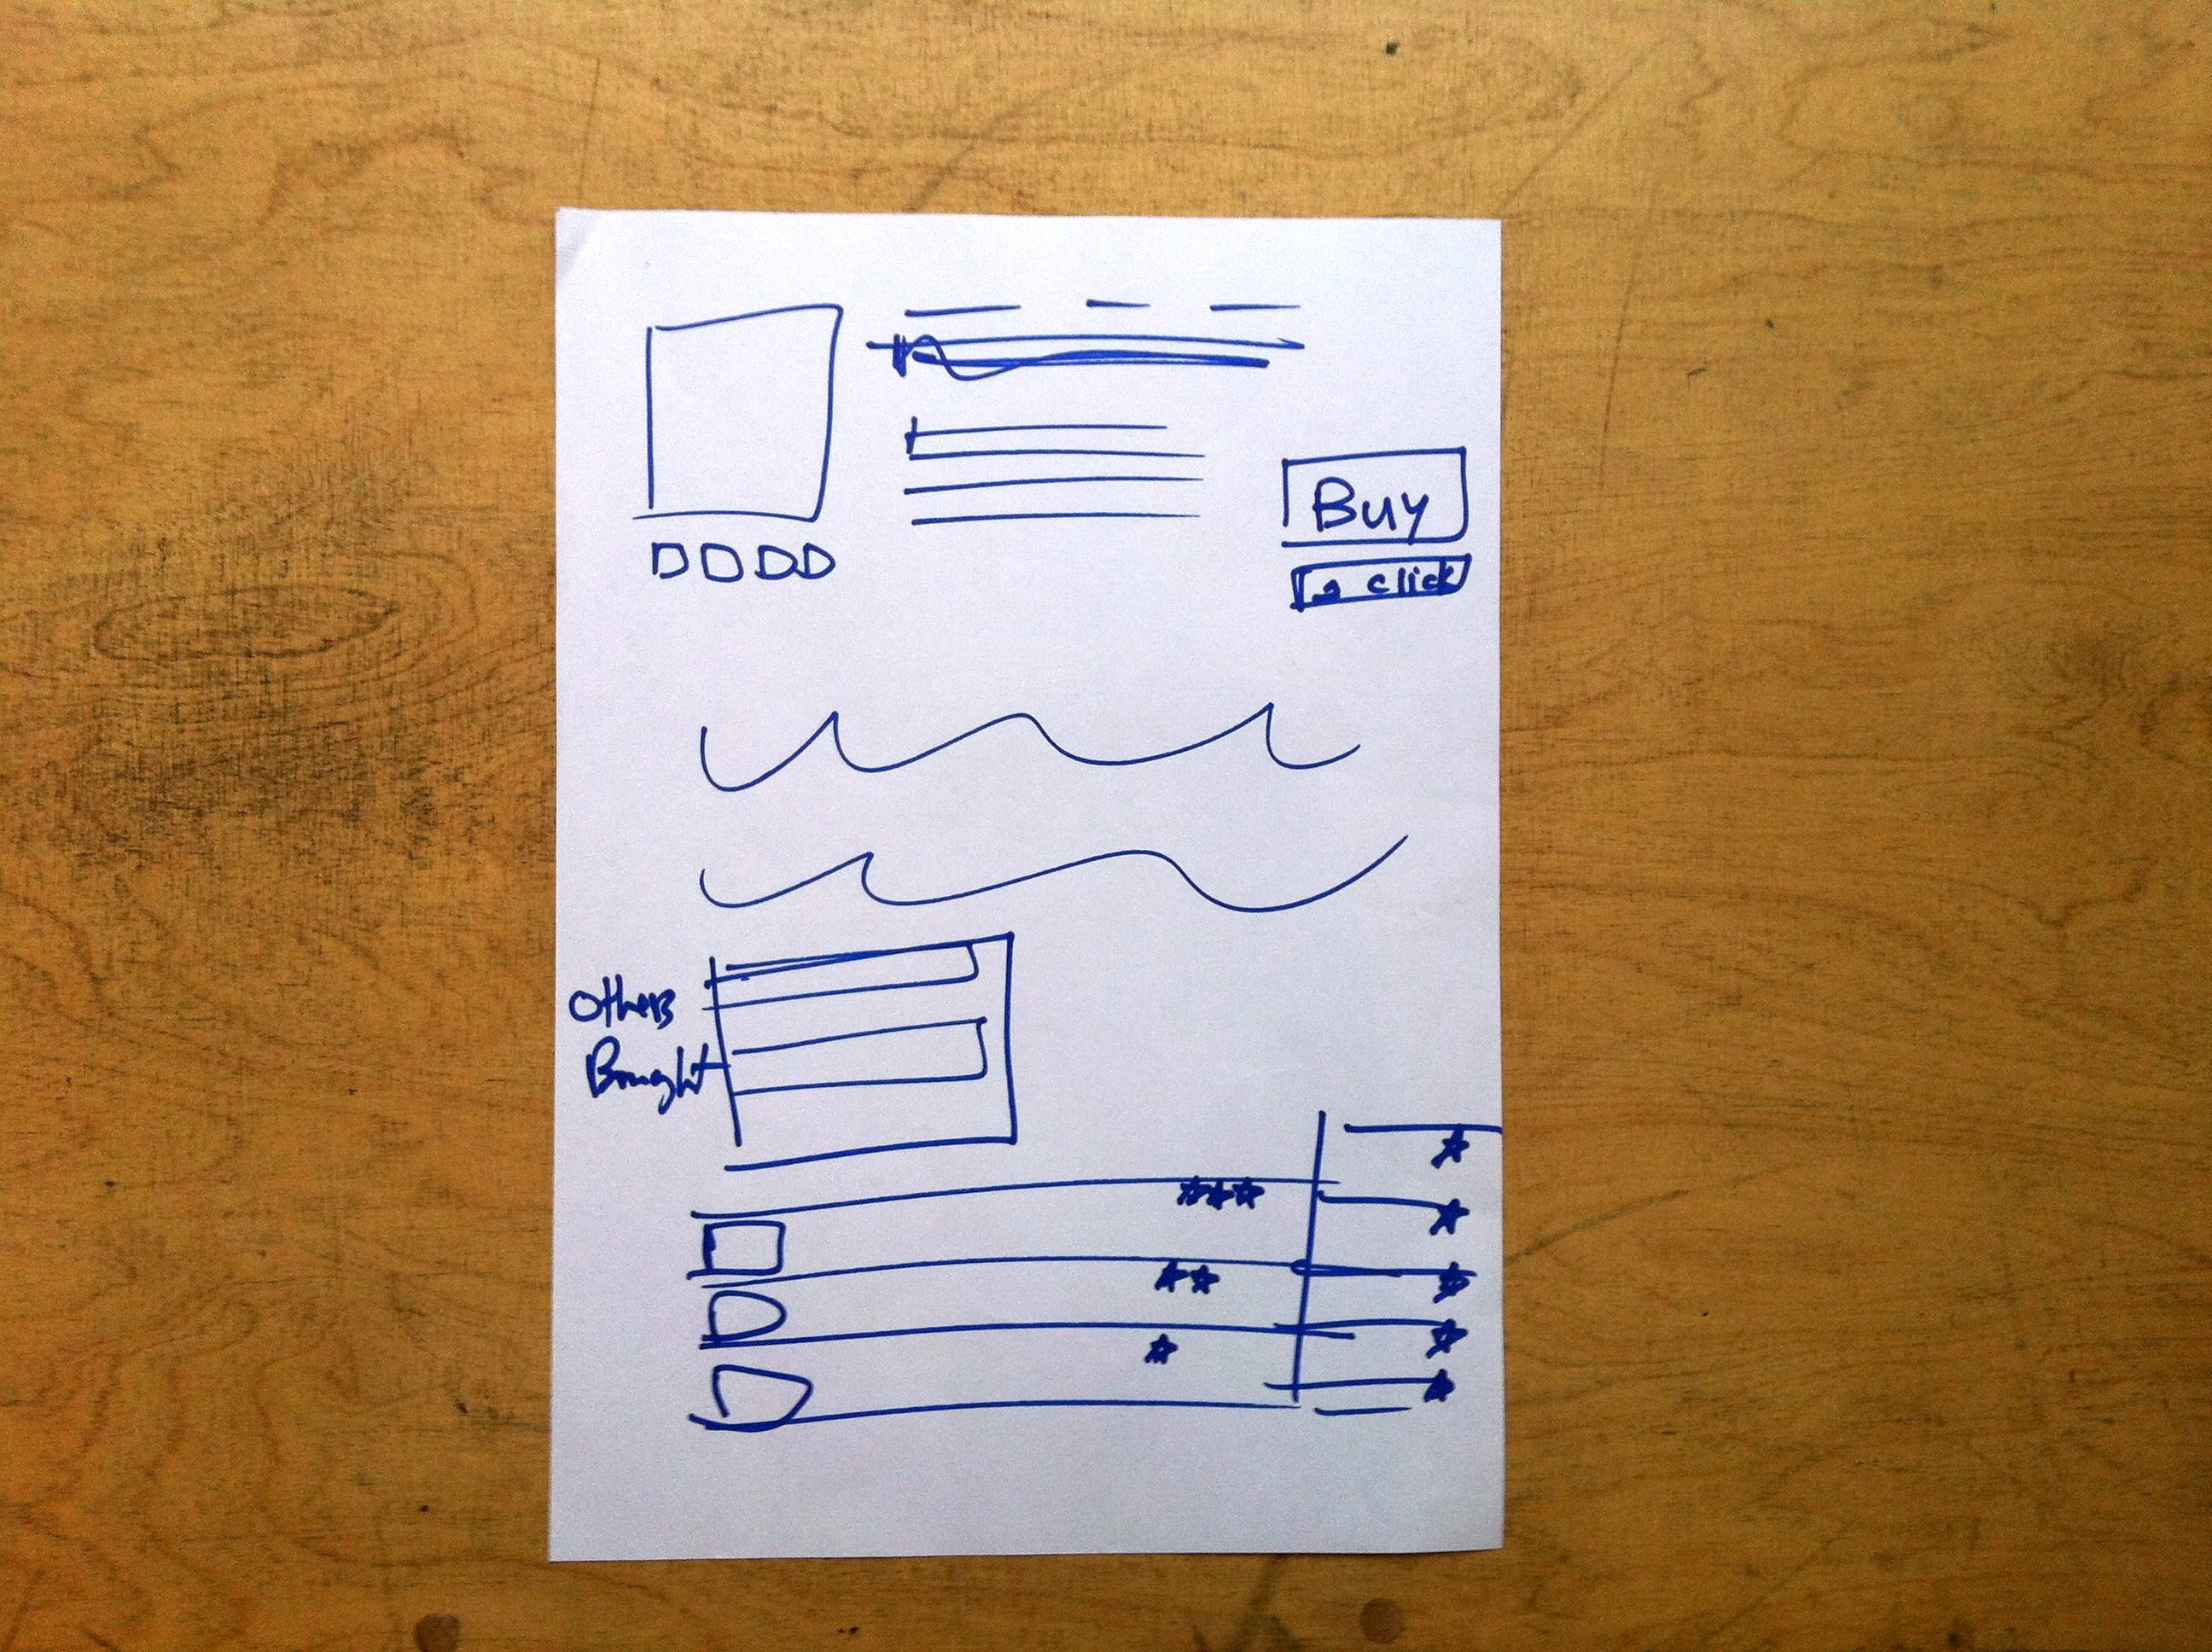 Buy
click
Others
Bought